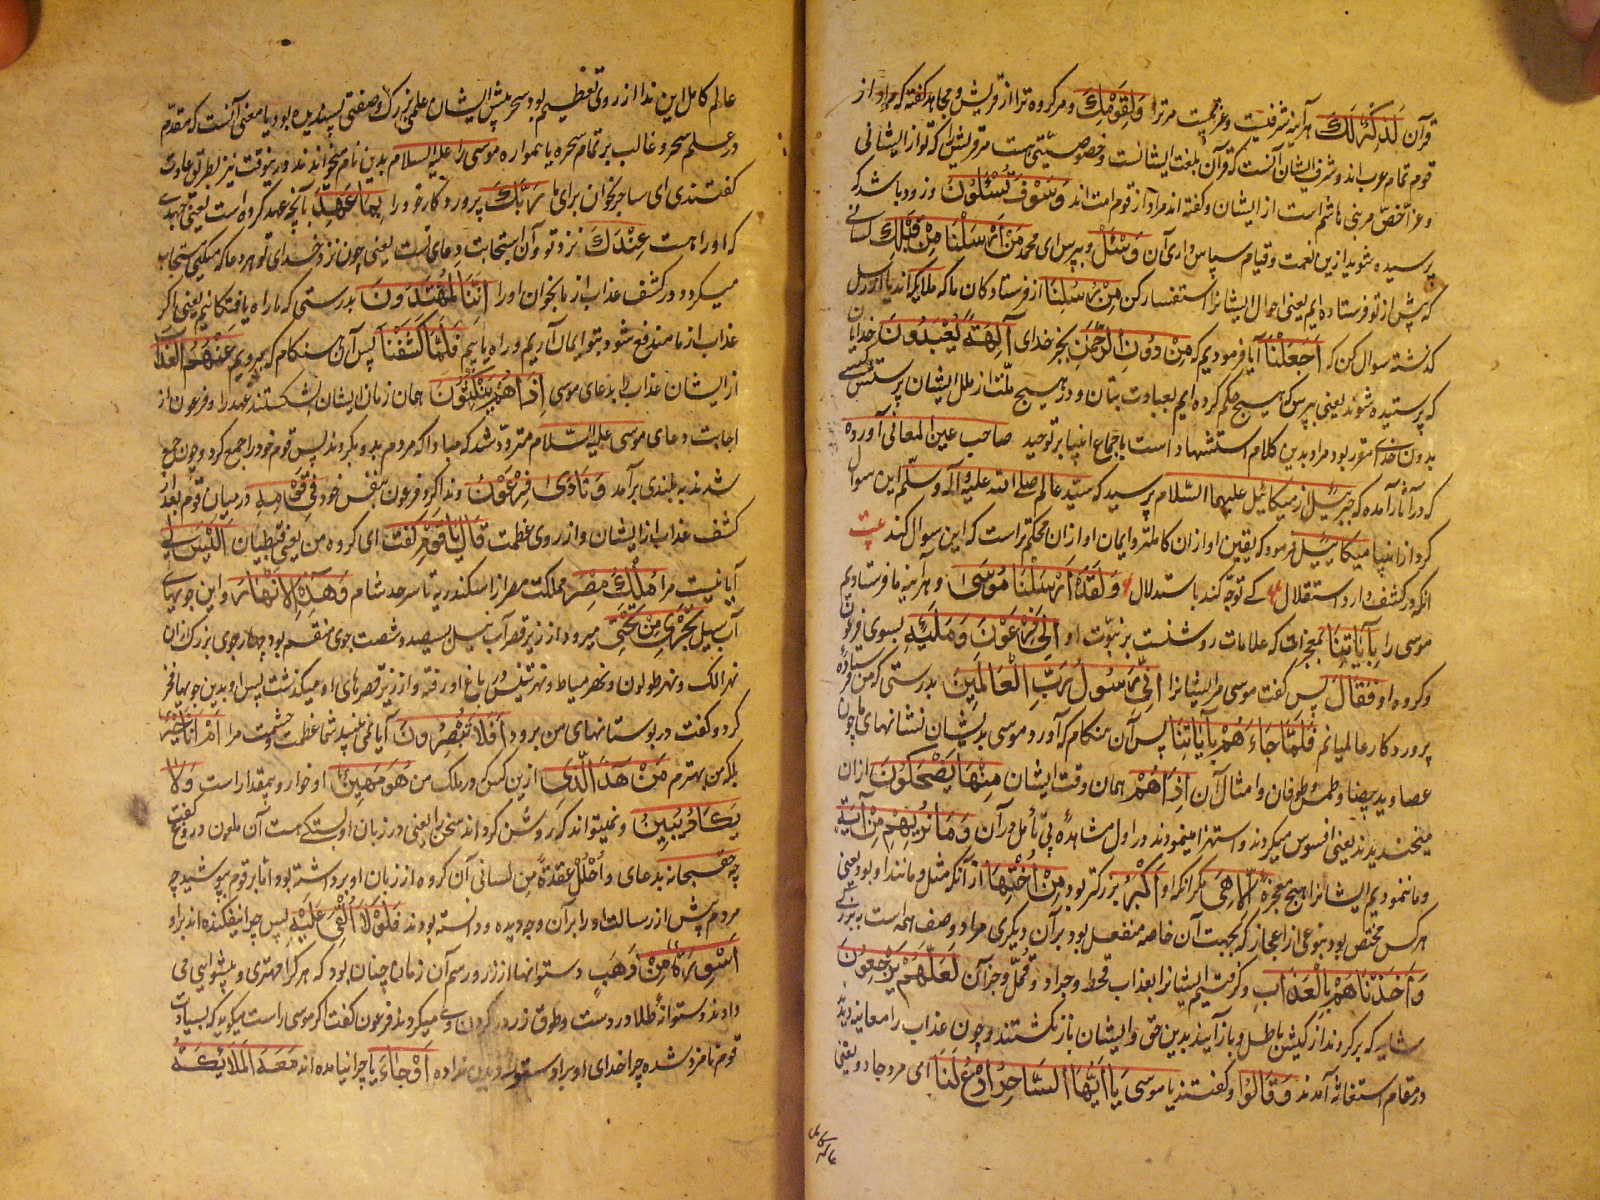 قرآن لَذِكْرٌ لَكَ هرآینه شرفیت و عزتیست مر ترا وَلِقَوْمِكَ و مر گروه ترا از قریش و مجاهد گفته که مراد از
قوم تمام عرب اند و شرف ایشان آنست که قرآن بلغت ایشانست و خصوصیتی هست مر قریش را که تو از ایشانی
و عز اخص مر بنی هاشم است از ایشان و گفته اند مراد از قوم امت اند وَسَوْفَ تُسْئَلُونَ و زود باشد که
پرسیده شوید ازین نعمت و قیام سپاس داری آن وَسْئَلْ و بپرس ای محمد مَنْ أَرْسَلْنَا مِنْ قَبْلِكَ کسانی
که پیش از تو فرستاده ایم یعنی احوال ایشانرا استفسار کن مِنْ رُسُلِنَا از فرستادگان ما که ملائکه اند یا از رسل
گذشته سوال کن که أَجَعَلْنَا آیا فرمودیم که مِنْ دُونِ الرَّحْمَنِ بجز خدای آلِهَةً يُعْبَدُونَ خدایان
که پرستیده شوند یعنی بپرس که هیچ حکم کرده ایم بعبادت بتان و در هیچ ملت از ملل ایشان پرستش کسی
بدون خدا مقرر بود مراد بدین کلام استشهاد است باجماع انبیا بر توحید صاحب عین المعانی آورده
که در آثار آمده که جبرئیل از میکائیل علیهما السلام پرسید که سید عالم صلی الله علیه و آله و سلم این سوال
کرد از انبیا میکائیل فرمود که یقین او ازان کاملتر و ایمان او ازان محکمتر است که این سوال کند
آنکه در کشف دارد استقلال کی توجه کند باستدلال وَلَقَدْ أَرْسَلْنَا مُوسَى و هرآینه ما فرستادیم
موسی را بِآيَاتِنَا بمعجزات که علامات روشنست بر نبوت او إِلَى فِرْعَوْنَ وَمَلَئِهِ بسوی فرعون
و گروه او فَقَالَ پس گفت موسی مر ایشانرا إِنِّي رَسُولُ رَبِّ الْعَالَمِينَ بدرستی که من فرستاده
پروردگار عالمیانم فَلَمَّا جَاءَهُمْ بِآيَاتِنَا پس آن هنگام که آورد موسی بدیشان نشانهای ما چون
عصا و ید بیضا و طمس و طوفان و امثال آن إِذَا هُمْ همان وقت ایشان مِنْهَا يَضْحَكُونَ ازان
میخندیدند یعنی افسوس میکردند و استهزا مینمودند در اول مشاهده بی تأمل در آن وَمَا نُرِيهِمْ مِنْ آيَةٍ
و ما ننمودیم ایشانرا هیچ معجزه إِلَّا هِيَ مگر آنکه او أَكْبَرُ بزرگتر بود مِنْ أُخْتِهَا از آنکه مثل و مانند او بود یعنی
هر کس مختص بود بنوعی از اعجاز که بجهت آن خاصه منفعل بود بر آن دیگری مراد وصف همه است ببزرگی
وَأَخَذْنَاهُمْ بِالْعَذَابِ و گرفتیم ایشانرا بعذاب قحط و جراد و قمل و جز آن لَعَلَّهُمْ يَرْجِعُونَ
شاید که برگردند از کیش باطل و باز آیند بدین حق و ایشان باز نگشتند و چون عذاب را معاینه دیدند
در مقام استغاثه آمدند وَقَالُوا و گفتند با موسی يَا أَيُّهَا السَّاحِرُ ادْعُ لَنَا ای مرد جادو یعنی
عالم کامل این ندا از روی تعظیم بود سحر پیش ایشان علمی بزرگ و صفتی پسندیده بود یا معنی آنست که مقدم
در علم سحر و غالب بر تمام سحره یا همواره موسی را علیه السلام بدین نام میخواندند درینوقت نیز بطریق عادت
گفتندی ای ساحر بخوان برای ما رَبَّكَ پروردگار خود را بِمَا عَهِدَ بآنچه عهد کرده است یعنی عهدی
که او را هست عِنْدَكَ نزد تو و آن استجابت دعای تست یعنی چون نزد خدای تو هر دعا که میکنی مستجاب
میگردد در کشف عذاب از ما بخوان او را إِنَّنَا لَمُهْتَدُونَ بدرستی که ما راه یافتگانیم یعنی اگر
عذاب از ما مندفع شود بتو ایمان آریم و راه یابیم فَلَمَّا كَشَفْنَا پس آن هنگام که ببردیم عَنْهُمُ الْعَذَابَ
از ایشان عذاب را بدعای موسی إِذَا هُمْ يَنْكُثُونَ همان زمان ایشان بشکستند عهد را و فرعون از
اجابت دعای موسی علیه السلام متردد شد که مبادا که مردم بدو بگروند پس قوم خود را جمع کرد و چون جمع
شدند به بلندی برآمد وَنَادَى فِرْعَوْنُ و ندا کرد فرعون بنفس خود فِي قَوْمِهِ در میان قوم بعد از
کشف عذاب از ایشان و از روی عظمت قَالَ يَا قَوْمِ گفت ای گروه من یعنی قبطیان أَلَيْسَ لِي
آیا نیست مرا مُلْكُ مِصْرَ مملکت مصر از اسکندریه تا سرحد شام وَهَذِهِ الْأَنْهَارُ و این جویهای
آب نیل تَجْرِي مِنْ تَحْتِي میرود از زیر قصر آب نیل سیصد و شصت جوی منقسم بود چهار جوی بزرگ ازان
نهر الملک و نهر طولون و نهر دمیاط و نهر تنیس در باغ او رفته و از زیر قصرهای او میگذشت پس او بدین جویها فخر
کرد و گفت در بوستانهای من برود أَفَلَا تُبْصِرُونَ آیا نمی بینید شما عظمت و حشمت مرا أَمْ أَنَا خَيْرٌ
بلکه من بهترم مِنْ هَذَا الَّذِي ازین کس که در ملک من هُوَ مَهِينٌ او خوار و بیمقدار است وَلَا
يَكَادُ يُبِينُ و نمیتواند که روشن گرداند سخن را یعنی در زبان او بستگی هست آن ملعون دروغ گفت
چه حقسبحانه بدعای وَاحْلُلْ عُقْدَةً مِنْ لِسَانِي آن گره از زبان او برداشته بود اما بر قوم بپوشید چه
مردم پیش از رسالت او را برآن وجه دیده و دانسته بودند فَلَوْلَا أُلْقِيَ عَلَيْهِ پس چرا نیفکنده اند بر او
أَسْوِرَةٌ مِنْ ذَهَبٍ دستوانها از زر و رسم آن زمان چنان بود که هر کرا مهتری و پیشوایی می
دادند دستوانه طلا در دست و طوق زر در گردن وی میکردند فرعون گفت اگر موسی راست میگوید که بسیادت
قوم نامزد شده چرا خدای او بر او دستوانه زرین نداده أَوْ جَاءَ یا چرا نیامده اند مَعَهُ الْمَلَائِكَةُ